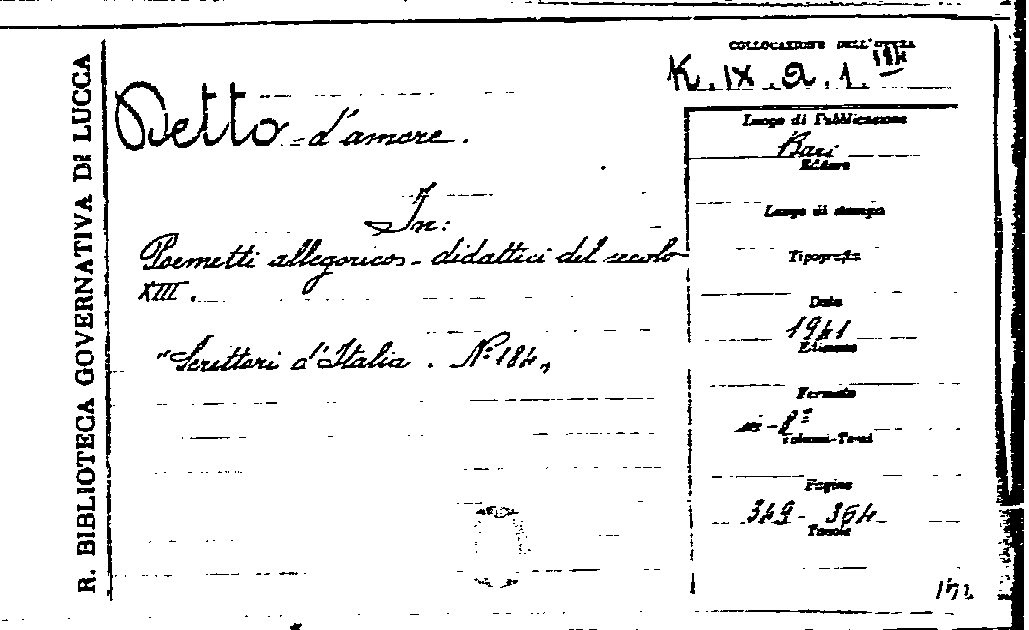 R. BIBLIOTECA GOVERNATIVA DI LUCCA
COLLOCAZIONE DELL'OPERA
K. IX. a. 1. 184
Detto d'amore.
In:
Poemetti allegoricos-didattici del secolo
XIII.
"Scrittori d'Italia. N° 184"
Luogo di Pubblicazione
Bari
Editore
Luogo di stampa
Tipografia
Data
1941
Edizione
Formato
in-8°
Volumi-Tomi
Pagine
349-364
Tavole